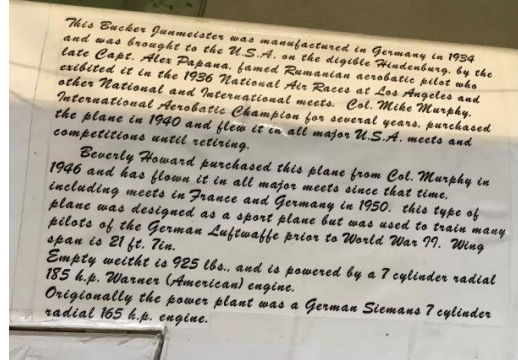 This Bucker Junmeister was manufactured in Germany in 1934
and was brought to the U.S.A. on the digible Hindenburg, by the
late Capt. Alex Papana, famed Rumanian aerobatic pilot who
exibited it in the 1936 National Air Races at Los Angeles and
other National and International meets. Col. Mike Murphy,
International Aerobatic Champion for several years, purchased
the plane in 1940 and flew it in all major U.S.A. meets and
competitions until retiring.
Beverly Howard purchased this plane from Col. Murphy in
1946 and has flown it in all major meets since that time,
including meets in France and Germany in 1950. this type of
plane was designed as a sport plane but was used to train many
pilots of the German Luftwaffe prior to World War II. Wing
span is 21 ft. 7in.
Empty weitht is 925 lbs., and is powered by a 7 cylinder radial
185 h.p. Warner (American) engine.
Origionally the power plant was a German Siemans 7 cylinder
radial 165 h.p. engine.